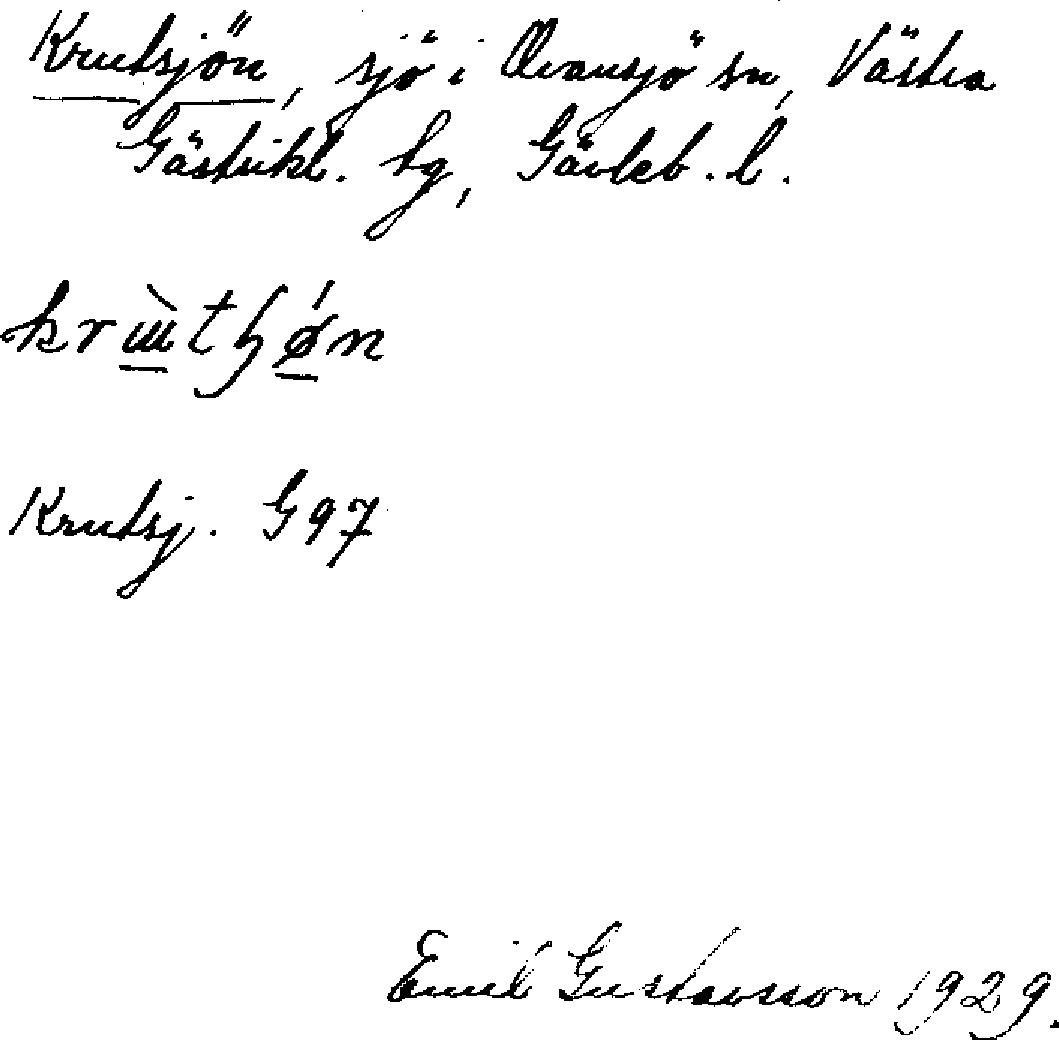 Krutsjön, sjö i Ovansjö sn, Västra
Gästrikl. tg, Gävleb. l.
Krutsj. G 97
Emil Gustavsson 1929.